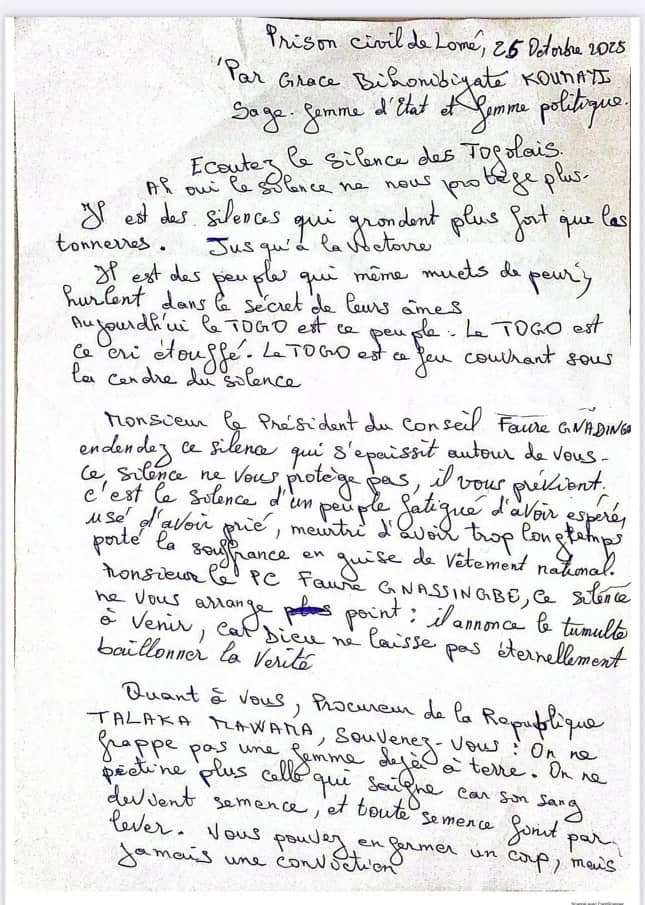 Prison civil de Lomé, 25 Octobre 2025
'Par Grace Bikonibiyate KOUMAYI
Sage-femme d'Etat et femme politique.
Ecoutez le silence des Togolais.
Ah oui le silence ne nous protège plus.
Il est des silences qui grondent plus fort que les
tonnerres. Jusqu'à la victoire
Il est des peuples qui même muets de peur,
hurlent dans le secret de leurs âmes
Aujourdh'ui le TOGO est ce peuple. Le TOGO est
ce cri étouffé. Le TOGO est ce feu couvrant sous
la cendre du silence
Monsieur le Président du Conseil Faure GNADINGO
endendez ce silence qui s'epaissit autour de vous-
ce silence ne vous protège pas, il vous prévient.
c'est le silence d'un peuple fatigué d'avoir espéré,
usé d'avoir prié, meurtri d'avoir trop longtemps
porté la souffrance en guise de vêtement national.
Monsieur le PC Faure GNASSINGBE, ce silence
ne vous arrange point : il annonce le tumulte
à venir, car Dieu ne laisse pas éternellement
baillonner la Verité
Quant à vous, Procureur de la Republique
TALAKA MAWAMA, souvenez-vous : On ne
frappe pas une femme dejà à terre. On ne
piétine plus celle qui saigne car son sang
devient semence, et toute semence finit par
lever. Vous pouvez enfermer un corp, mais
Jamais une conviction